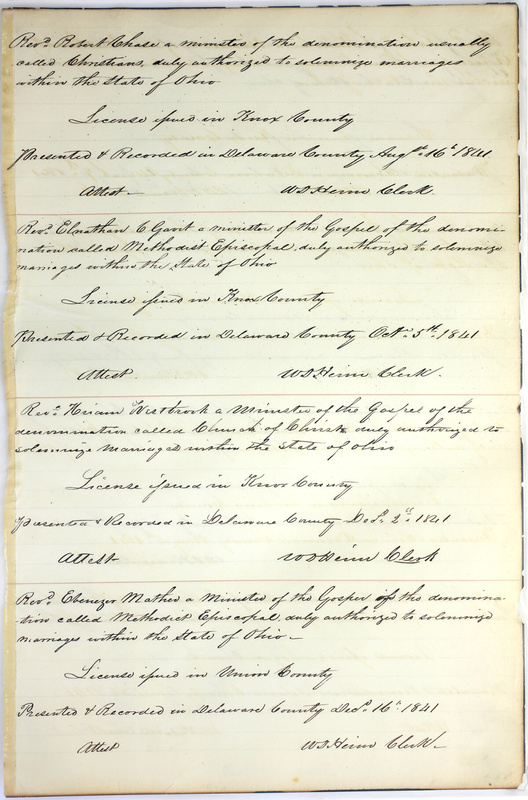 Revd. Robert Chase a minister of the denomination usually
called Christians, duly authorized to solemnize marriages
within the State of Ohio
License issued in Knox County
Presented & Recorded in Delaware County Augt. 16th 1841
Attest W D Heim Clerk
Revd. Elnathan C Gavit a minister of the Gospel of the denomi-
nation called Methodist Episcopal, duly authorized to solemnize
marriages within the State of Ohio
License issued in Knox County
Presented & Recorded in Delaware County Octr. 5th. 1841
Attest. W D Heim Clerk.
Revd. Hiram Westbrook a Minister of the Gospel of the
denomination called Church of Christ, duly authorized to
solemnize Marriages within the State of Ohio
License issued in Knox County
Presented & Recorded in Delaware County Decr. 2d. 1841
Attest W D Heim Clerk
Revd. Ebenezer Mather a Minister of the Gospel of the denomina-
tion called Methodist Episcopal, duly authorized to solemnize
marriages within the State of Ohio.
License issued in Union County
Presented & Recorded in Delaware County Decr. 16th. 1841
Attest W D Heim Clerk